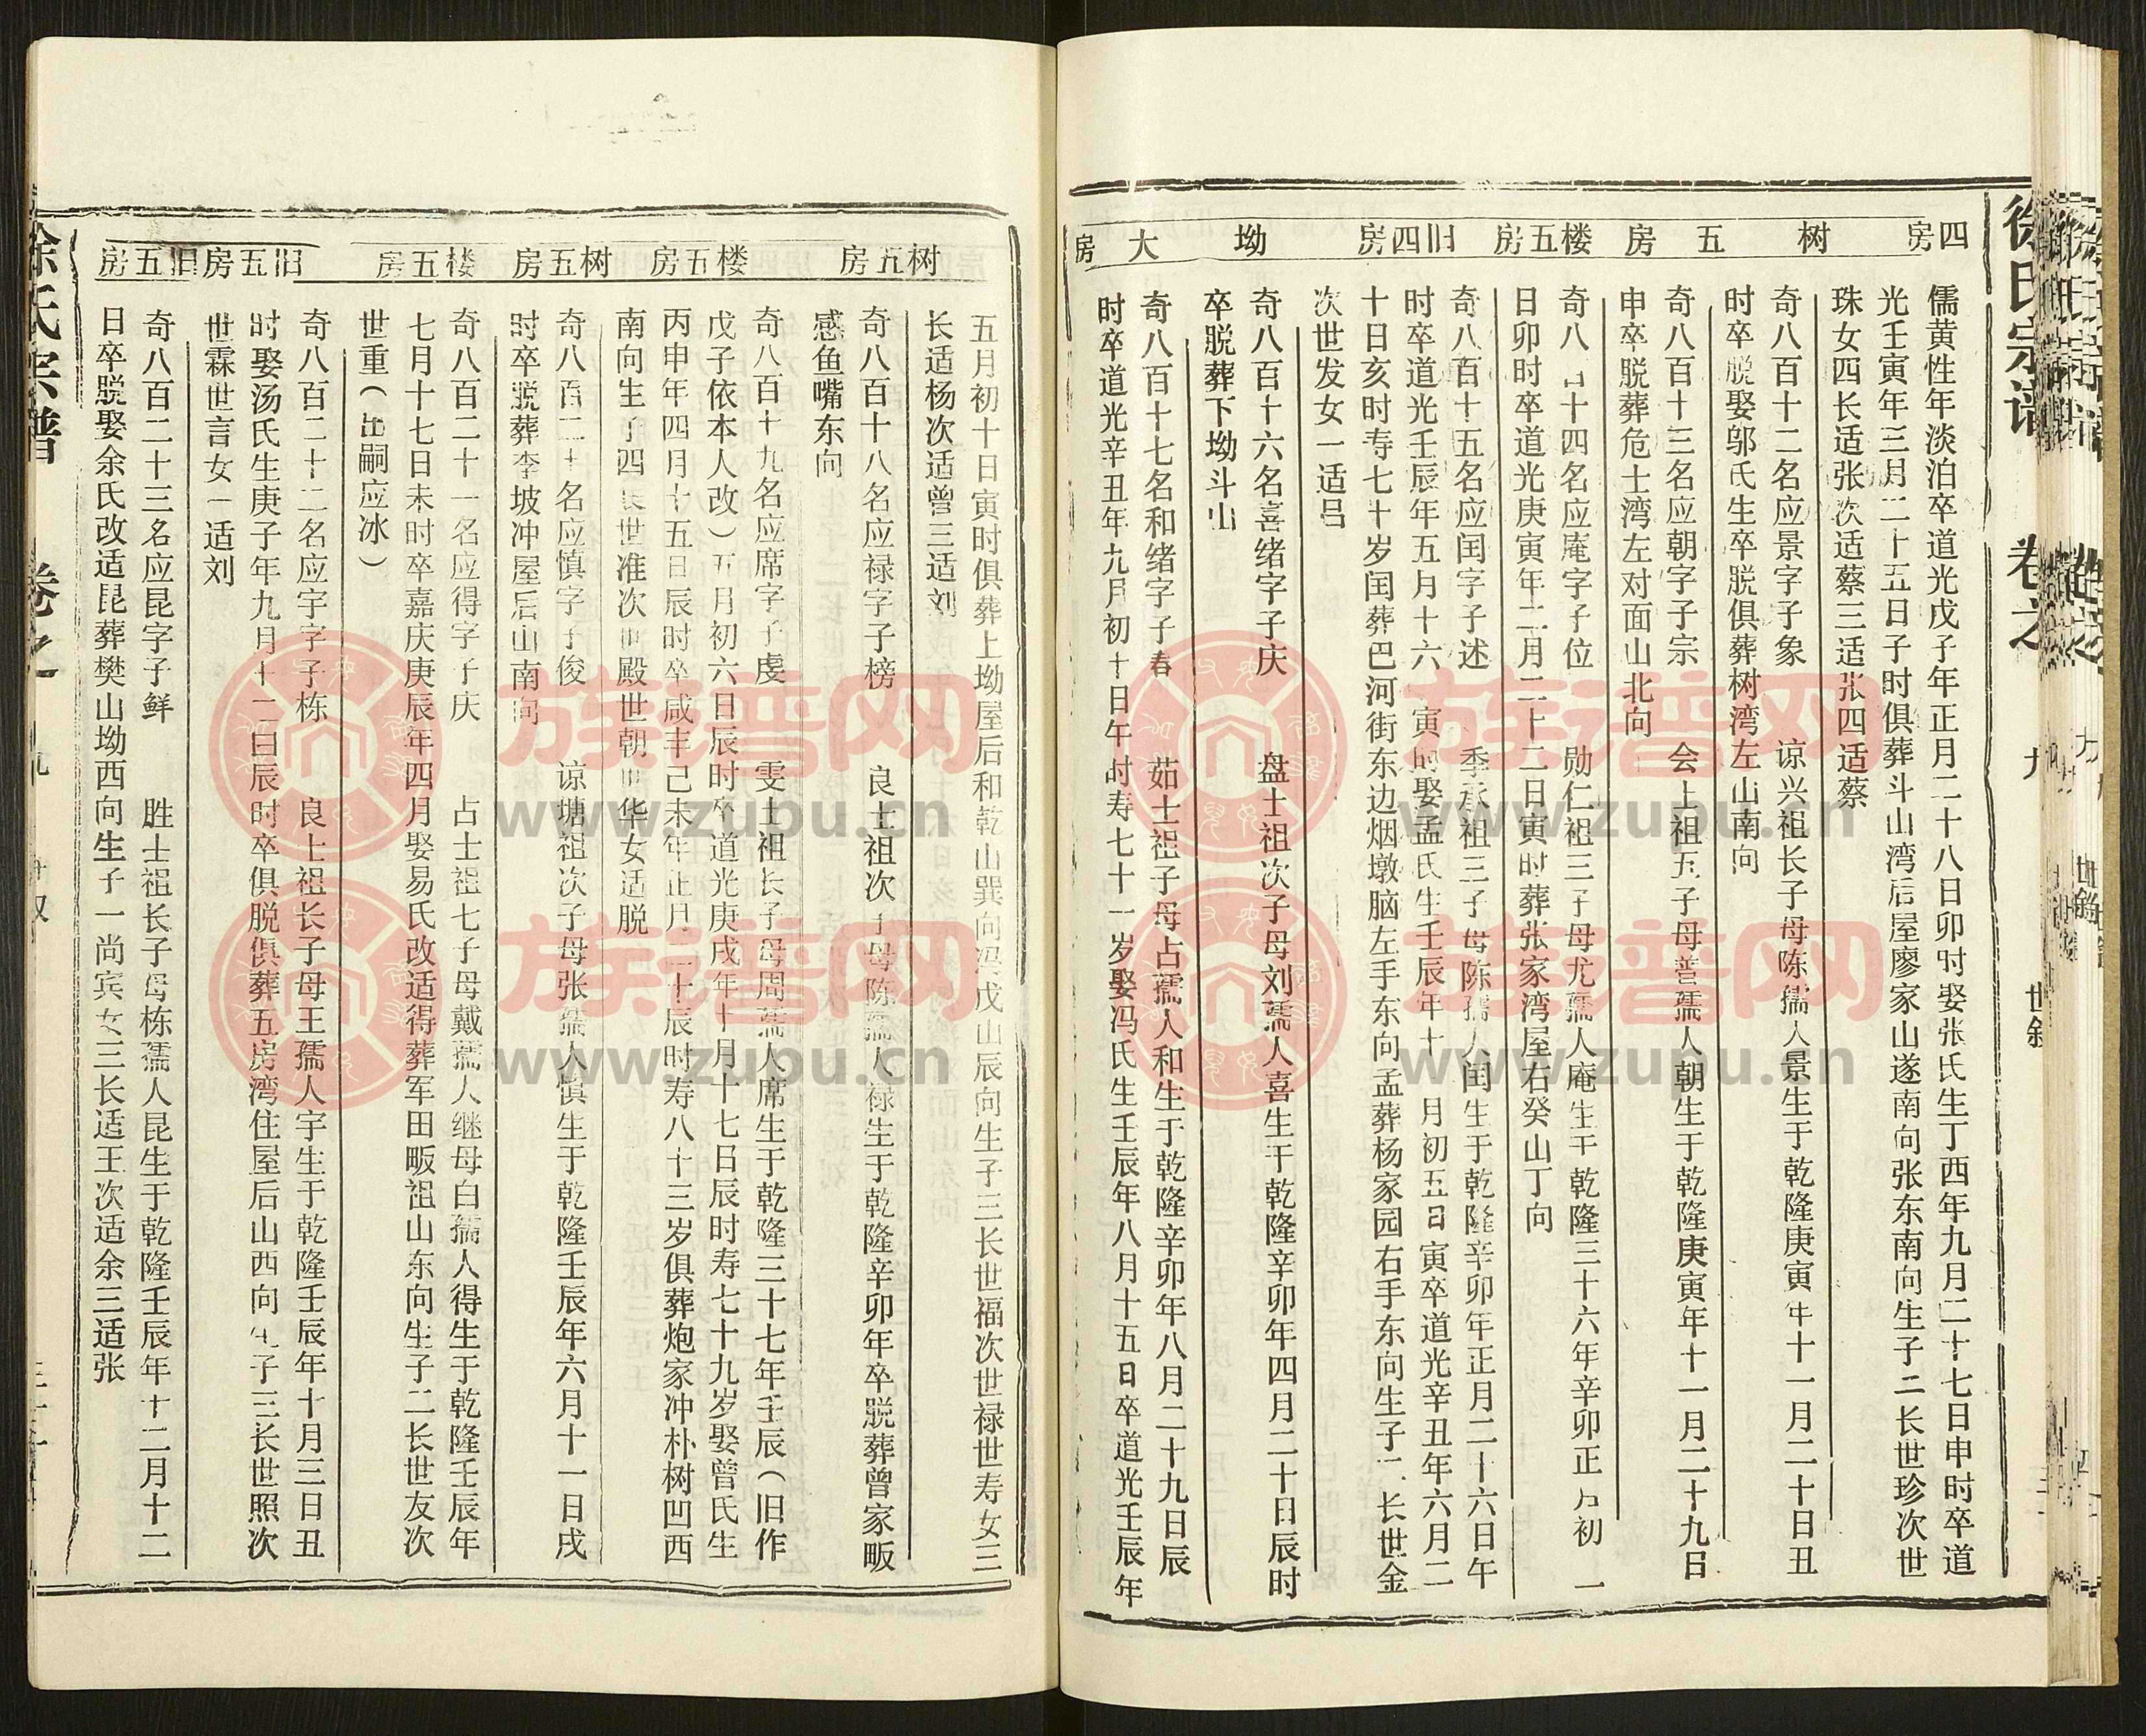 徐氏宗谱 卷之 九 世
四房 树五房 楼五房 旧四房 坳大房
儒黄性年淡泊卒道光戊子年正月二十八日卯时娶张氏生丁酉年九月二十七日申时卒道
光壬寅年三月二十五日子时俱葬斗山湾后屋廖家山遂南向张东南向生子二长世珍次世
珠女四长适张次适蔡三适张四适蔡
奇八百十二名应景字子象 谅兴祖长子母陈孺人景生于乾隆庚寅年十一月二十日丑
时卒脱娶邬氏生卒脱俱葬树湾左山南向
奇八百十三名应朝字子宗 会士祖五子母普孺人朝生于乾隆庚寅年十一月二十九日
申卒脱葬危士湾左对面山北向
奇八百十四名应庵字子位 勋仁祖三子母尤孺人庵生于乾隆三十六年辛卯正月初一
日卯时卒道光庚寅年二月二十二日寅时葬张家湾屋右癸山丁向
奇八百十五名应闰字子述 季承祖三子母陈孺人闰生于乾隆辛卯年正月二十六日午
时卒道光壬辰年五月十六 寅时娶孟氏生壬辰年十 月初五日寅卒道光辛丑年六月二
十日亥时寿七十岁闰葬巴河街东边烟墩脑左手东向孟葬杨家园右手东向生子二长世金
次世发女一适吕
奇八百十六名喜绪字子庆 盘士祖次子母刘孺人喜生于乾隆辛卯年四月二十日辰时
卒脱葬下坳斗山
奇八百十七名和绪字子春 茹士祖子母占孺人和生于乾隆辛卯年八月二十九日辰
时卒道光辛丑年九月初十日午时寿七十一岁娶冯氏生壬辰年八月十五日卒道光壬辰年
树五房 楼五房 树五房 楼五房 旧五房 旧五房
五月初十日寅时俱葬上坳屋后和乾山巽向冯戊山辰向生子三长世福次世禄世寿女三
长适杨次适曾三适刘
奇八百十八名应禄字子榜 良士祖次子母陈孺人禄生于乾隆辛卯年卒脱葬曾家畈
感鱼嘴东向
奇八百十九名应席字子虔 雯士祖长子母周孺人席生于乾隆三十七年壬辰（旧作
戊子依本人改）五月初六日辰时卒道光庚戌年十月十七日辰时寿七十九岁娶曾氏生
丙申年四月十五日辰时卒咸丰己未年正月二十辰时寿八十三岁俱葬炮家冲朴树凹西
南向生子四长世准次世殿世朝世华女适脱
奇八百二十名应慎字子俊 谅塘祖次子母张孺人慎生于乾隆壬辰年六月十一日戌
时卒脱葬李坡冲屋后山南向
奇八百二十一名应得字子庆 占士祖七子母戴孺人继母白孺人得生于乾隆壬辰年
七月十七日未时卒嘉庆庚辰年四月娶易氏改适得葬军田畈祖山东向生子二长世友次
世重（出嗣应冰）
奇八百二十二名应宇字子栋 良士祖长子母王孺人宇生于乾隆壬辰年十月三日丑
时娶汤氏生庚子年九月十二日辰时卒俱脱俱葬五房湾住屋后山西向生子三长世照次
世霖世言女一适刘
奇八百二十三名应昆字子鲜 胜士祖长子母栋孺人昆生于乾隆壬辰年十二月十二
日卒脱娶余氏改适昆葬樊山坳西向生子一尚宾女三长适王次适余三适张
徐氏宗谱 卷之
族谱网
www.zupu.cn
族谱网
www.zupu.cn
族谱网
www.zupu.cn
族谱网
www.zupu.cn